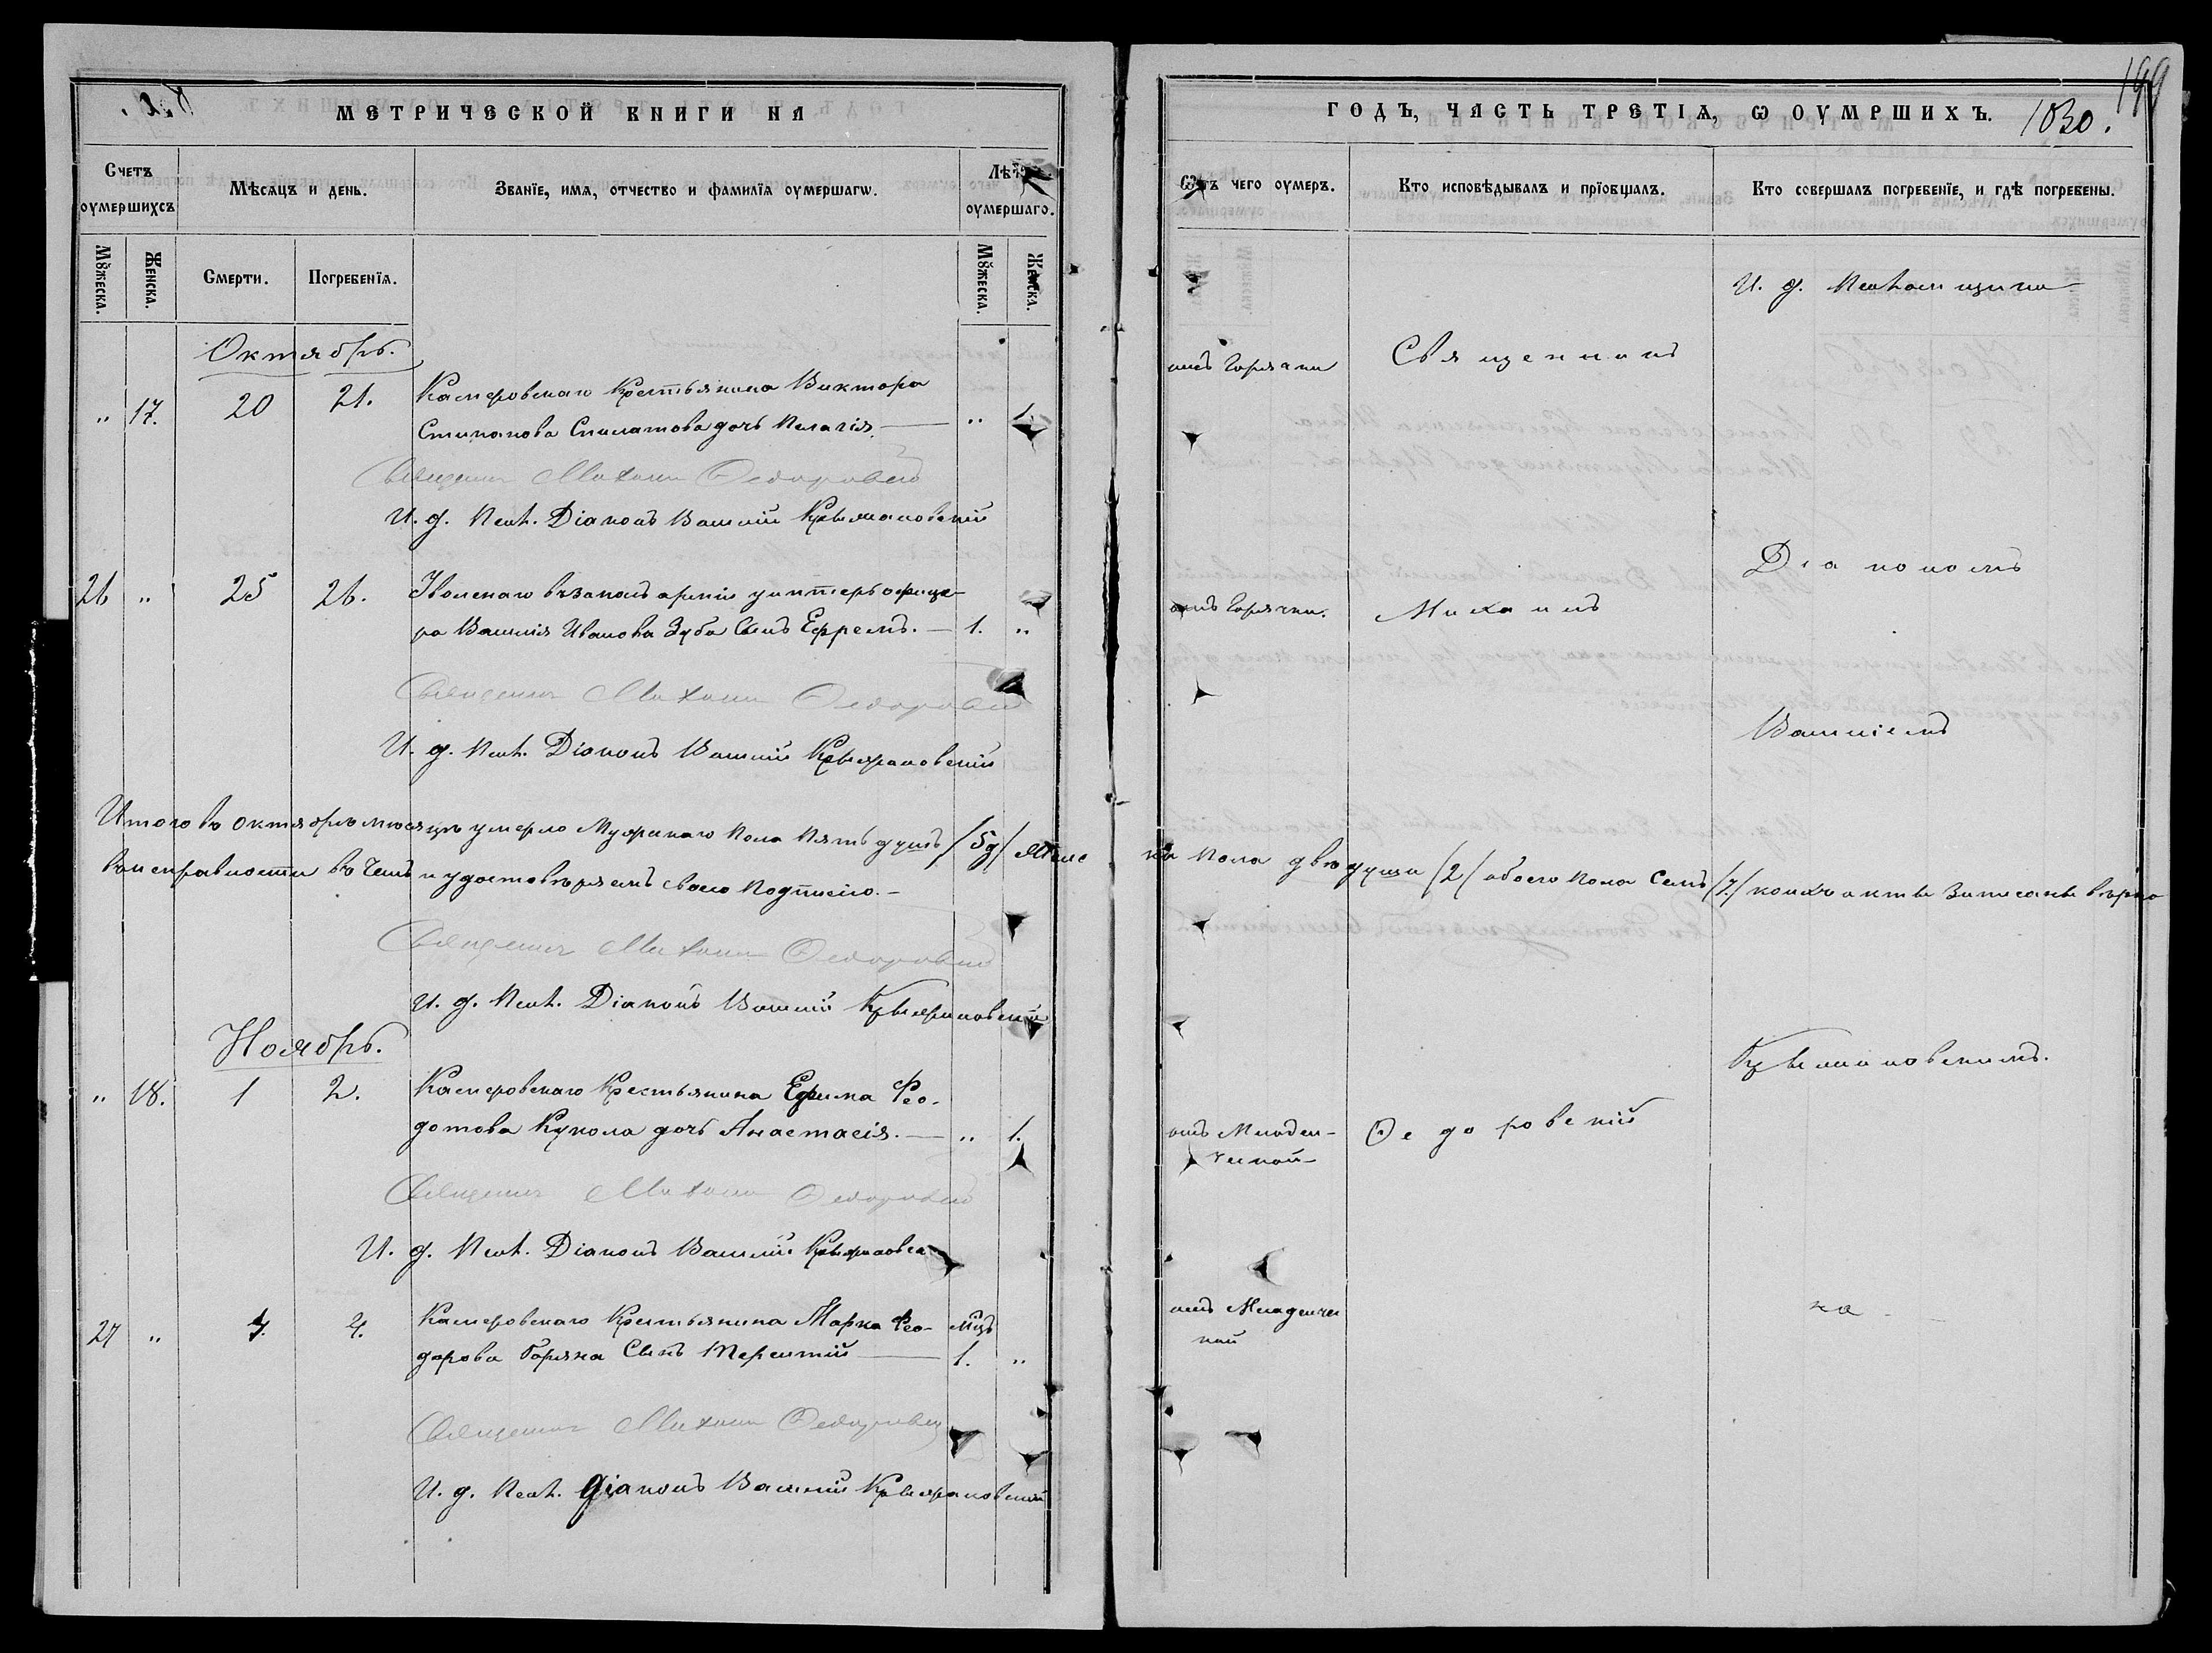 МЕТРИЧЕСКОЙ КНИГИ НА
Счетъ оумершихсъ
Мѣсяцъ и день.
Званїе, имя, отчество и фамилїя оумершагѡ.
Лѣта оумершаго.
Мꙋжеска.
Женска.
Смерти.
Погребенїя.
Мꙋжеска.
Женска.
Октябрь.
„ 17. 20 21. Камеровскаго Крестьянина Виктора
Степанова дочь Пелагія. — „ 1.
Священник Михаил Федоровский
И. д. Псал. Діаконъ Василій Крыжановскій
26 „ 25 26. унтеръ офице-
ра Василія Иванова Зуба Сынъ Ефремъ. — 1. „
Священник Михаил Федоровский
И. д. Псал. Діаконъ Василій Крыжановскій
Итого въ октябрѣ мѣсяцѣ умерло Мужскаго Пола Пять душъ /5д/ Женс
въ исправности въ чемъ и удостовѣряемъ своею подписью. –
Священник Михаил Федоровский
И. д. Псал. Діаконъ Василій Крыжановскій
Ноябрь.
„ 18. 1 2. Камеровскаго Крестьянина Ефима Фео-
дотова Кукола дочь Анастасія. — „ 1.
Священник Михаил Федоровский
И. д. Псал. Діаконъ Василій Крыжановск
27 „ 4. Камеровскаго Крестьянина Марка Фео- мцъ
дорова Сынъ Терентій — 1. „
Священник Михаил Федоровский
И. д. Псал. Діаконъ Василій Крыжановскій
ГОДЪ, ЧАСТЬ ТРЕТІѦ, Ѡ ОУМРШИХЪ. 1880.
199
Ѿъ чего оумеръ.
Кто исповѣдывалъ и прїовщалъ.
Кто совершалъ погребенїе, и гдѣ погребены.
И. д. Псаломщика
отъ Горячки
Священникъ
Діакономъ
отъ Горячки.
Михаилъ
Василіемъ
ка Пола двѣ души /2/ обоего пола Семь /7./ коихъ акты записаны вѣрно
Крыжановскимъ.
отъ Младен-
ческой
Федоровскій
отъ Младенчес
кой
на